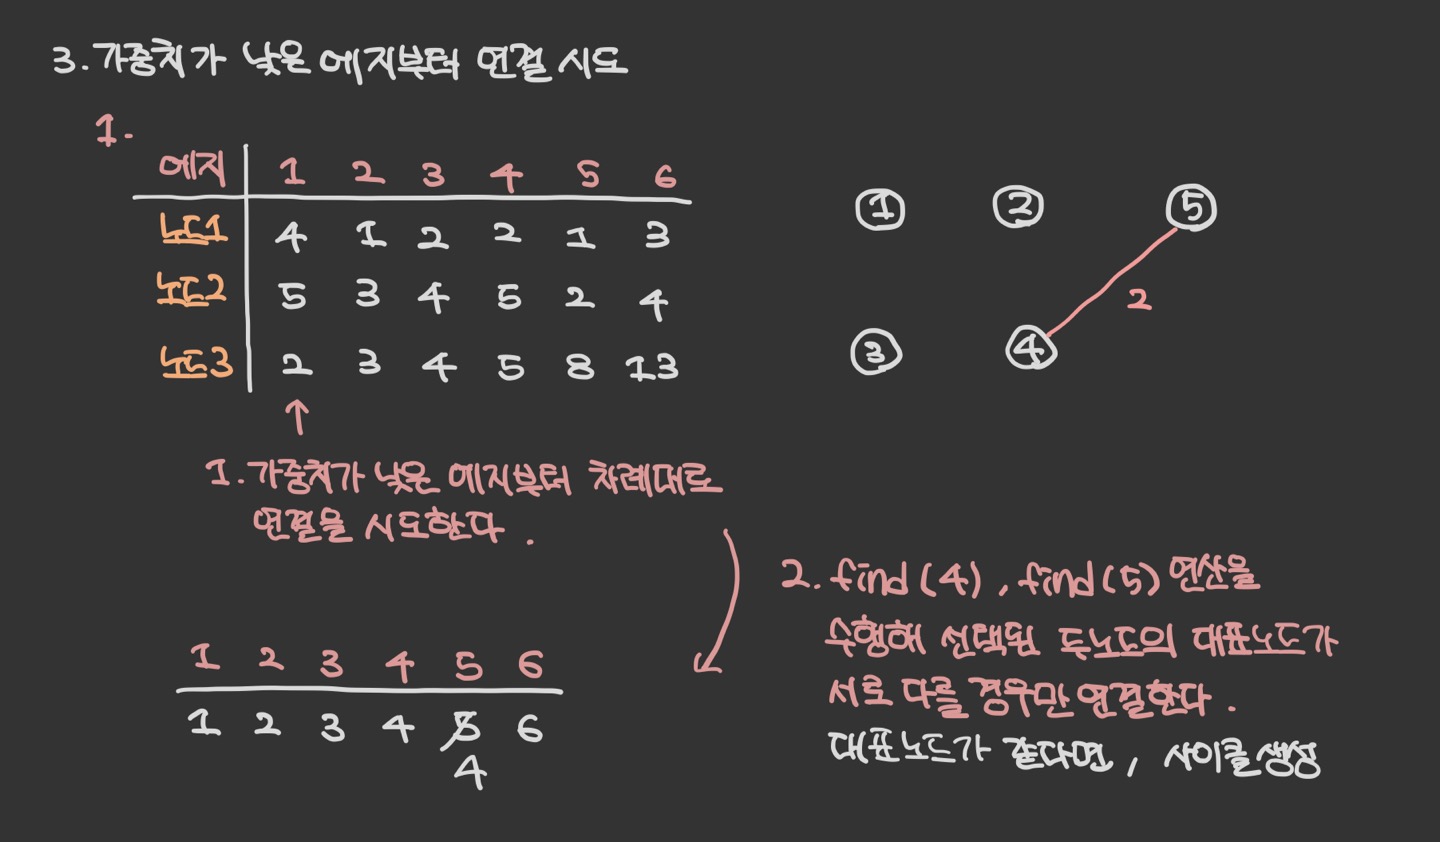 3. 가중치가 낮은 에지부터 연결 시도
1.
에지 1 2 3 4 5 6
노드1 4 1 2 2 1 3
노드2 5 3 4 5 2 4
노드3 2 3 4 5 8 13
1 2 5
2
3 4
1. 가중치가 낮은 에지부터 차례대로
연결을 시도한다.
2. find(4), find(5) 연산을
수행해 선택된 두노드의 대표노드가
서로 다를 경우만 연결한다.
대표노드가 같다면, 사이클 생성
1 2 3 4 5 6
1 2 3 4 5 6
4